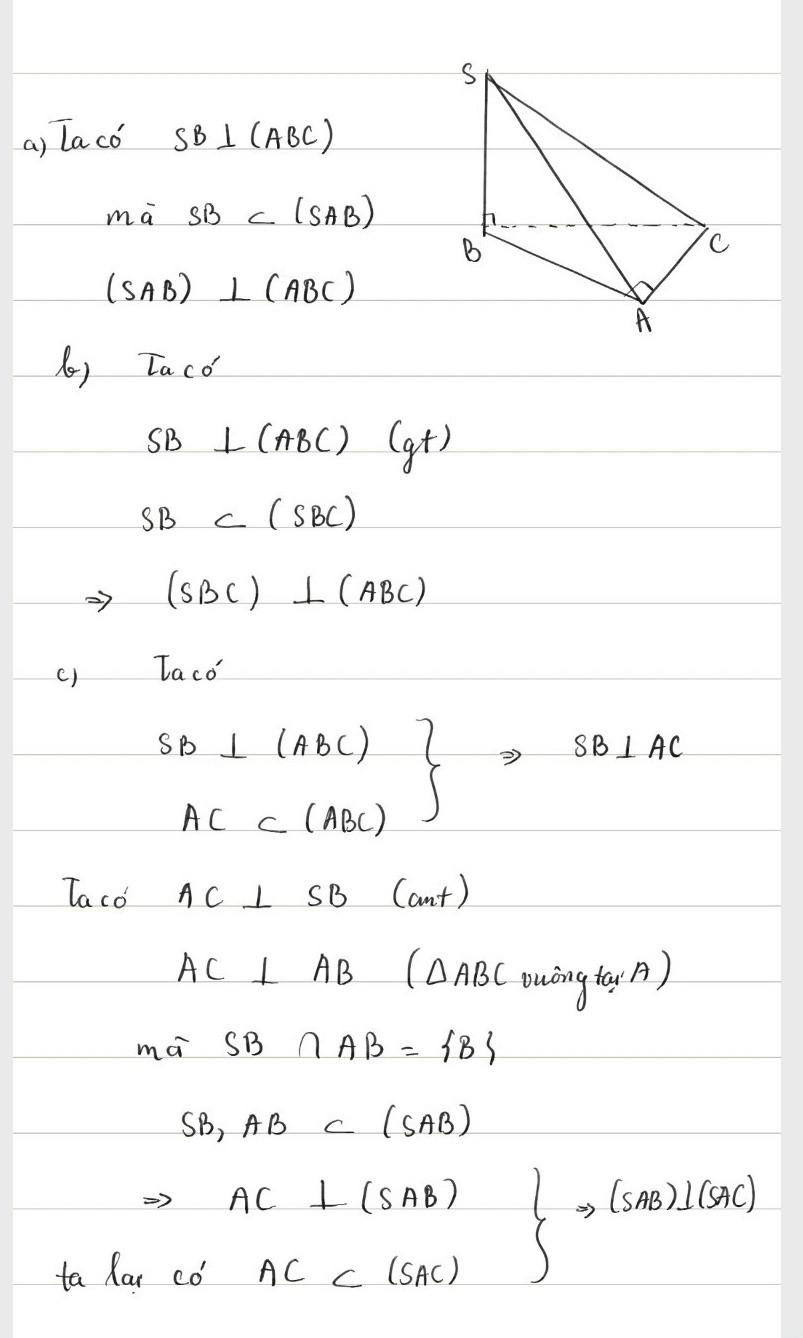 S
a) Ta có SB ⊥ (ABC)
mà SB ⊂ (SAB)
B
C
(SAB) ⊥ (ABC)
A
b) Ta có
SB ⊥ (ABC) (gt)
SB ⊂ (SBC)
⇒ (SBC) ⊥ (ABC)
c) Ta có
SB ⊥ (ABC) } ⇒ SB ⊥ AC
AC ⊂ (ABC)
Ta có AC ⊥ SB (cmt)
AC ⊥ AB (ΔABC vuông tại A)
mà SB ∩ AB = {B}
SB, AB ⊂ (SAB)
⇒ AC ⊥ (SAB) } ⇒ (SAB) ⊥ (SAC)
ta lại có AC ⊂ (SAC)